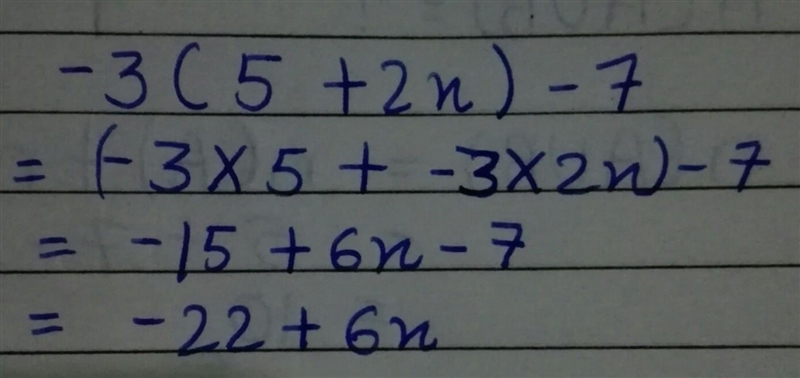 -3(5+2x)-7
=(-3×5+-3×2x)-7
= -15+6x-7
= -22+6x